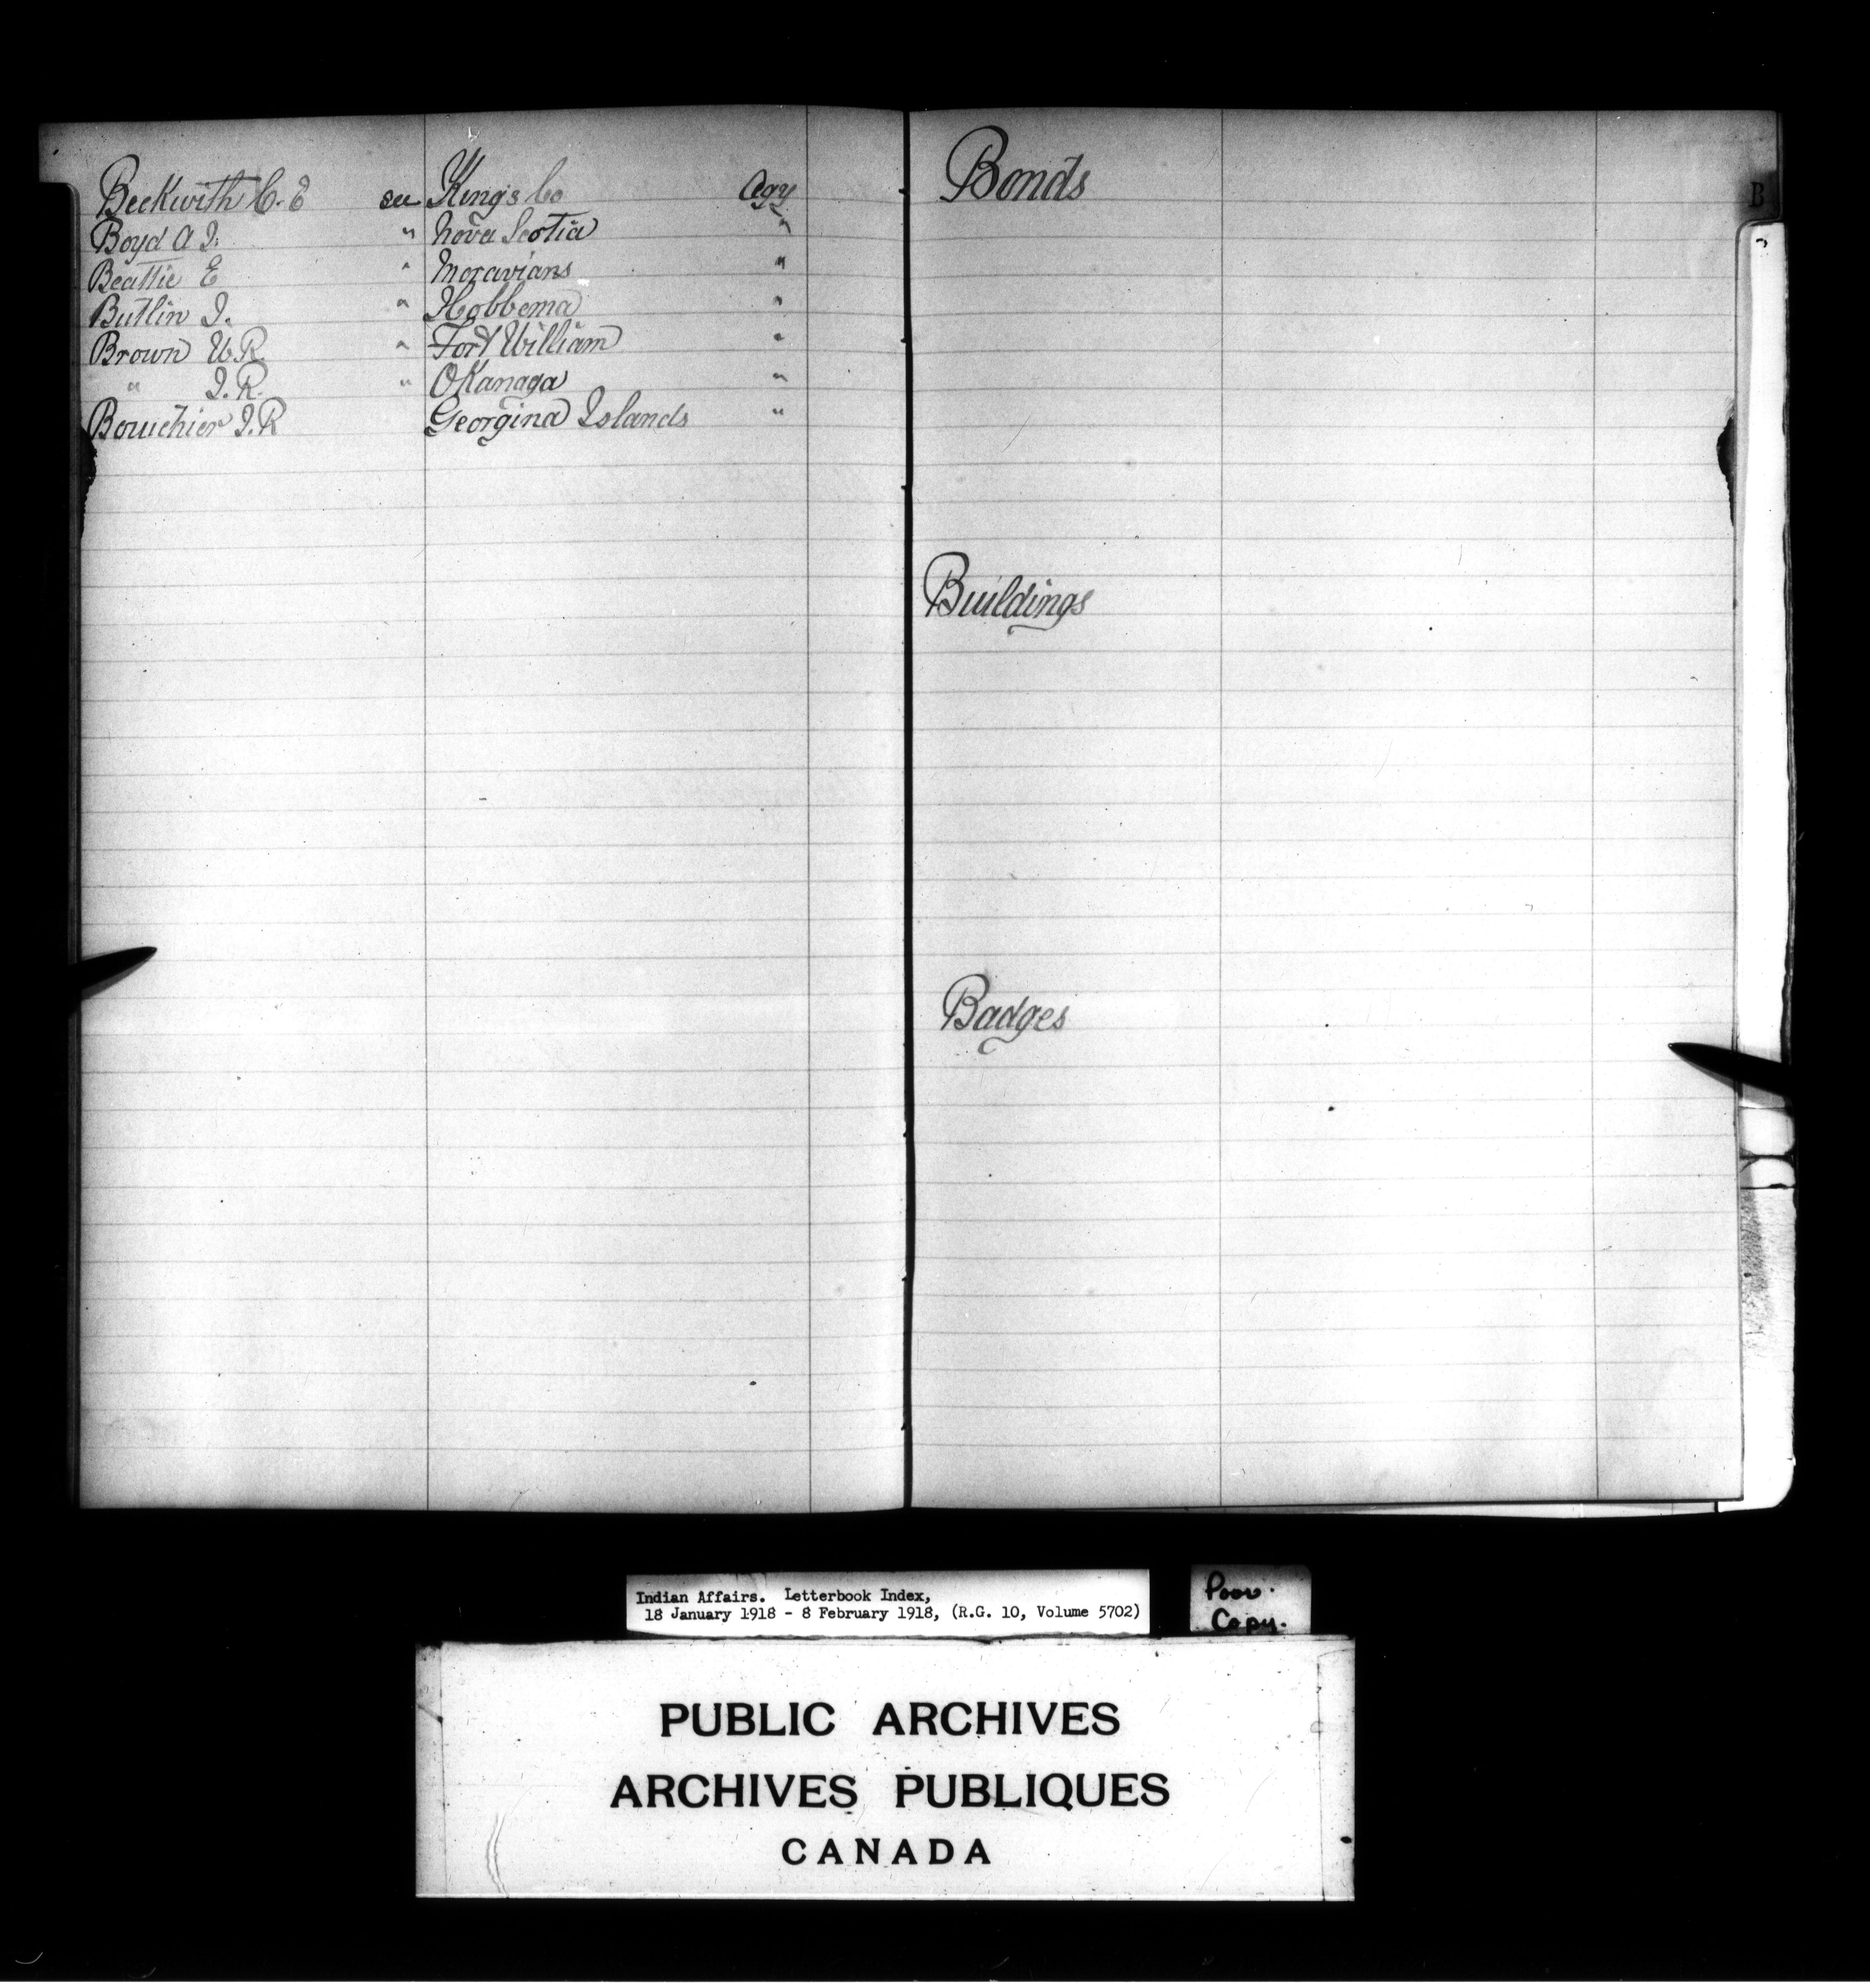 Beckwith C. E see Kings Co Agy
Boyd A J. " Nova Scotia "
Beattie E " Moravians "
Butlin J. " Hobbema "
Brown W R. " Fort William "
" J. R. " OKanaga "
Bourchier J. R Georgina Islands "
Bonds
B
Buildings
Badges
Indian Affairs. Letterbook Index,
18 January 1918 - 8 February 1918, (R.G. 10, Volume 5702)
Poor.
Copy.
PUBLIC ARCHIVES
ARCHIVES PUBLIQUES
CANADA